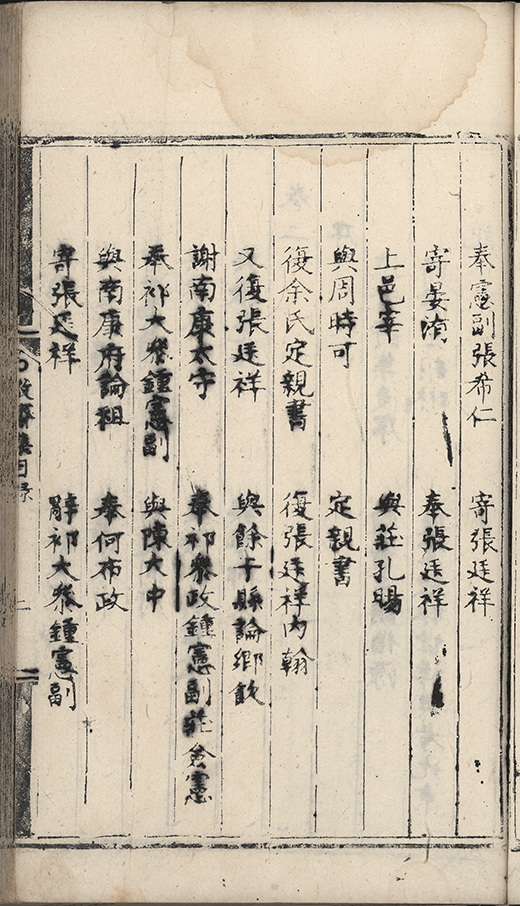 奉憲副張希仁 寄張廷祥
寄晏洧 奉張廷祥
上邑宰 與莊孔暘
與周時可 定親書
復余氏定親書 復張廷祥內翰
又復張廷祥 與餘干縣論鄉飲
謝南康太守 奉祁參政鍾憲副莊僉憲
奉祁大參鍾憲副 與陳大中
與南康府論祖 奉何布政
寄張廷祥 辭祁大參鍾憲副
敬齋集目录 二